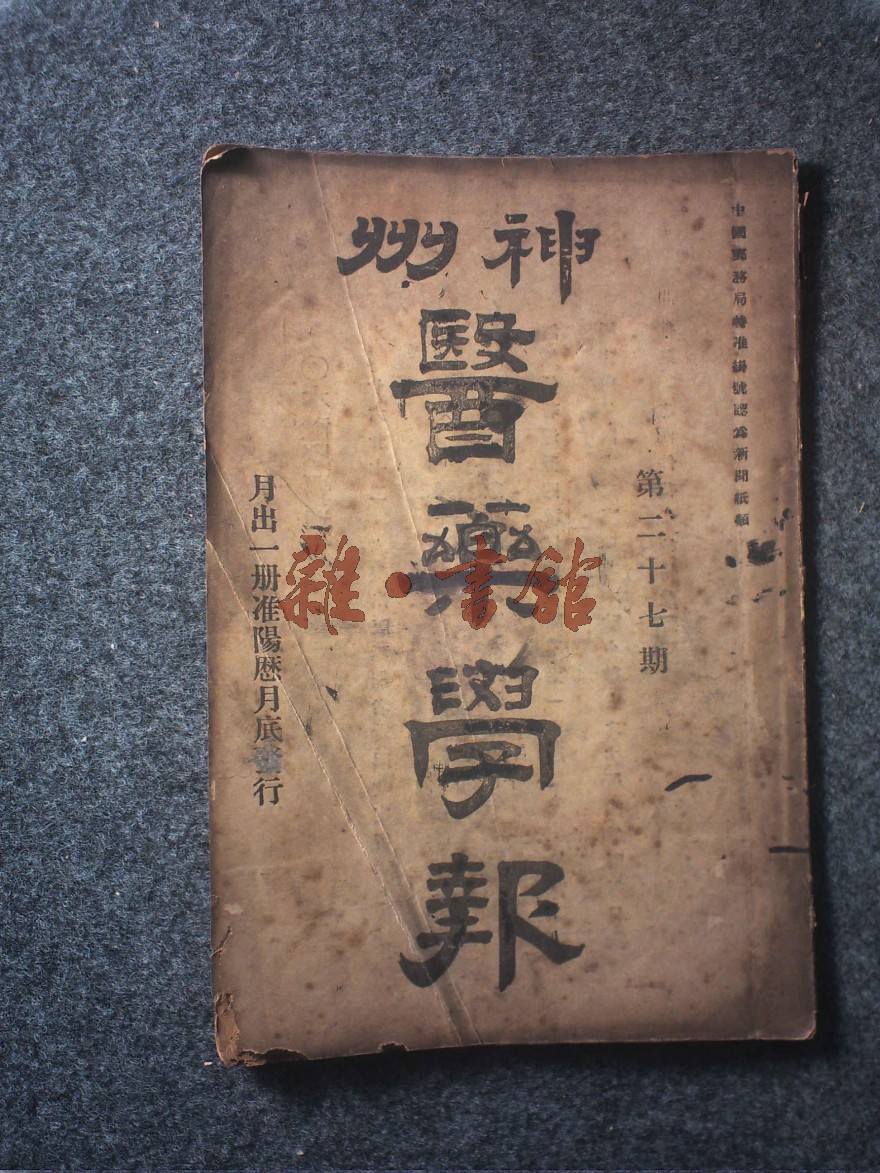 中國郵務局特准掛號認爲新聞紙類
第二十七期
神州
醫藥學報
月出一册准陽歷月底發行
雜·書館